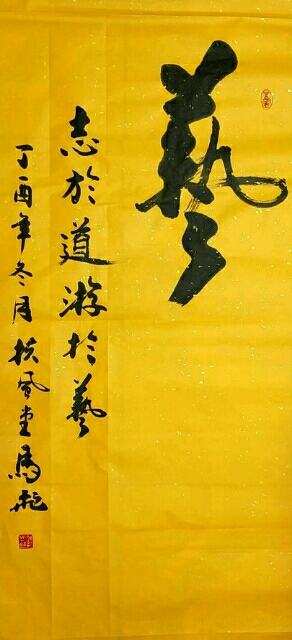 藝
志於道游於藝
丁酉年冬月扶風堂馬飛